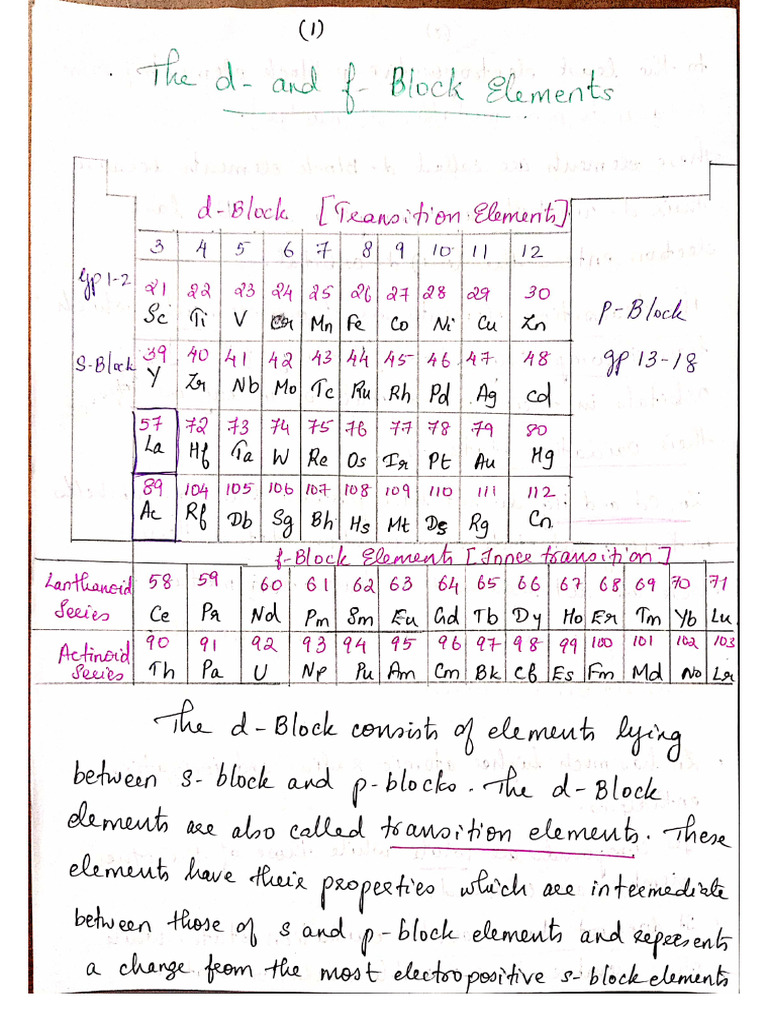 (1)
The d- and f- Block Elements
d-Block [Transition Element]
3 4 5 6 7 8 9 10 11 12
Gp 1-2
21 22 23 24 25 26 27 28 29 30
Sc Ti V Cr Mn Fe Co Ni Cu Zn
P-Block
S-Block
39 40 41 42 43 44 45 46 47 48
Y Zr Nb Mo Tc Ru Rh Pd Ag Cd
gp 13-18
57 72 73 74 75 76 77 78 79 80
La Hf Ta W Re Os Ir Pt Au Hg
89 104 105 106 107 108 109 110 111 112
Ac Rf Db Sg Bh Hs Mt Ds Rg Cn
f-Block Elements [Inner transition]
Lanthanoid Series
58 59 60 61 62 63 64 65 66 67 68 69 70 71
Ce Pr Nd Pm Sm Eu Gd Tb Dy Ho Er Tm Yb Lu
Actinoid Series
90 91 92 93 94 95 96 97 98 99 100 101 102 103
Th Pa U Np Pu Am Cm Bk Cf Es Fm Md No Lr
The d-Block consists of elements lying
between s-block and p-blocks. The d-Block
elements are also called transition elements. These
elements have their properties which are intermediate
between those of s and p-block elements and represents
a change from the most electropositive s-block elements